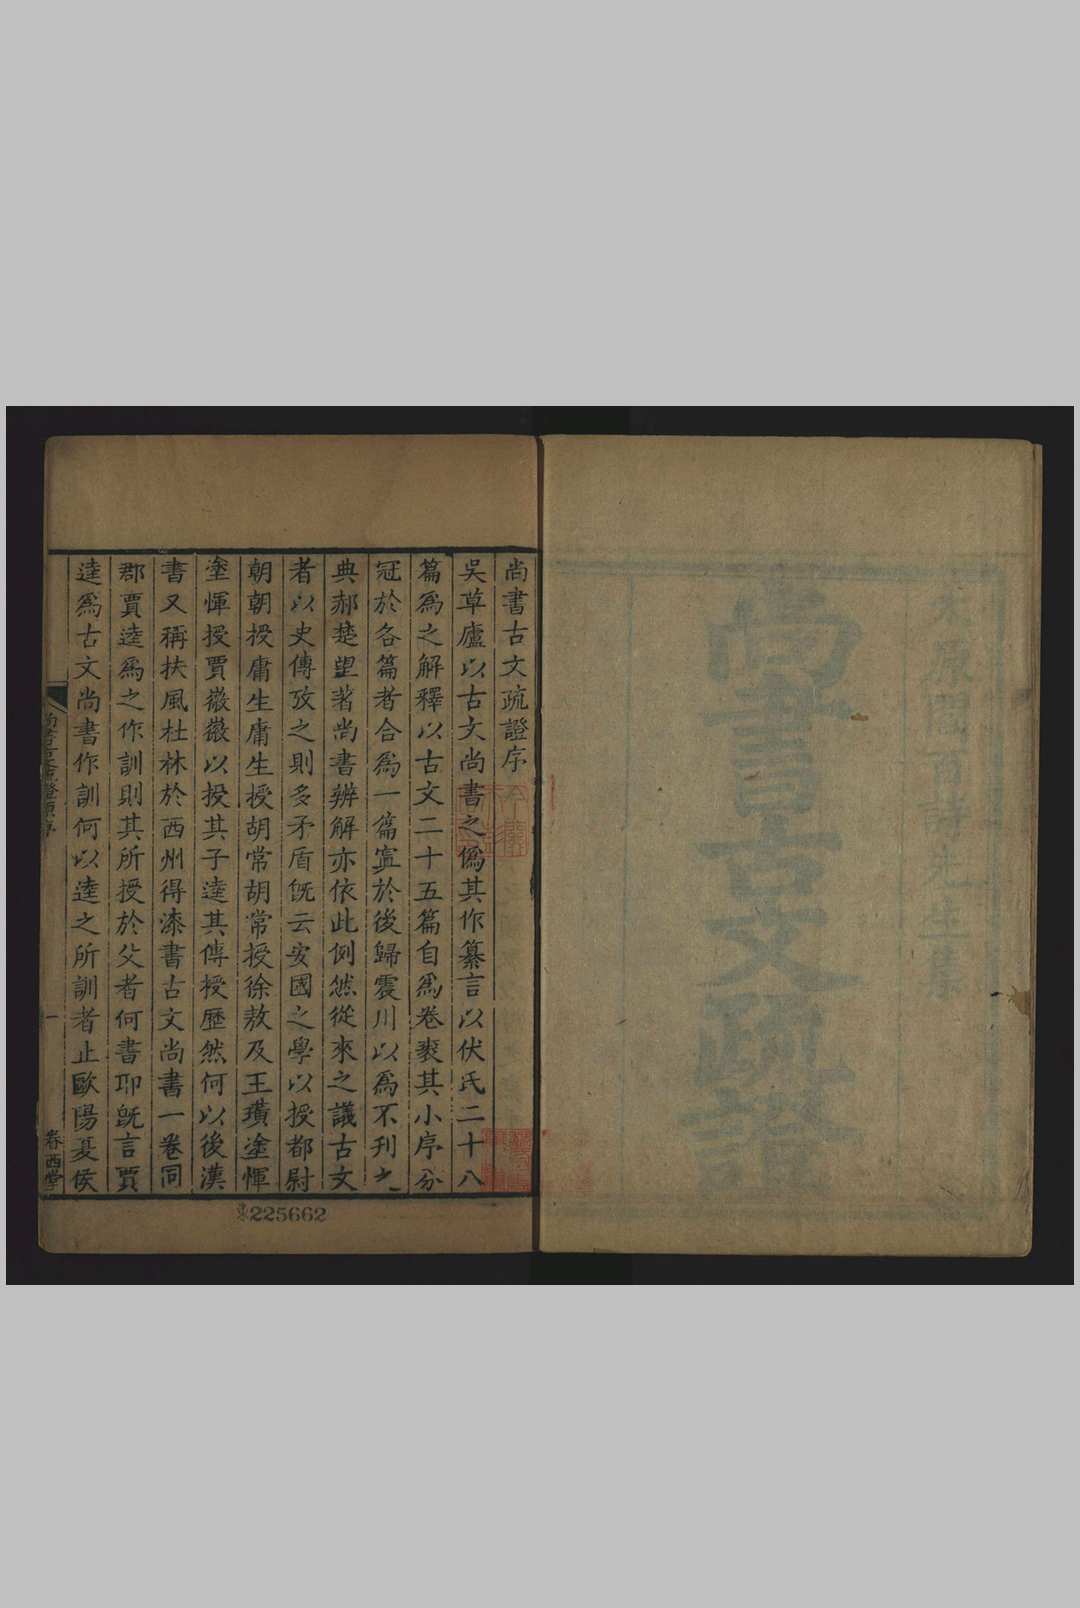 太原閻百詩先生集
尚書古文疏證
尚書古文疏證序
吳草廬以古文尚書之僞其作纂言以伏氏二十八
篇爲之解釋以古文二十五篇自爲卷袠其小序分
冠於各篇者合爲一篇寘於後歸震川以爲不刊之
典郝楚望著尚書辨解亦依此例然從來之議古文
者以史傳攷之則多矛盾旣云安國之學以授都尉
朝朝授庸生庸生授胡常胡常授徐敖及王璜塗惲
塗惲授賈徽徽以授其子逵其傳授歷然何以後漢
書又稱扶風杜林於西州得漆書古文尚書一卷同
郡賈逵爲之作訓則其所授於父者何書耶旣言賈
逵爲古文尚書作訓何以逵之所訓者止歐陽夏侯
一
眷西堂
225662